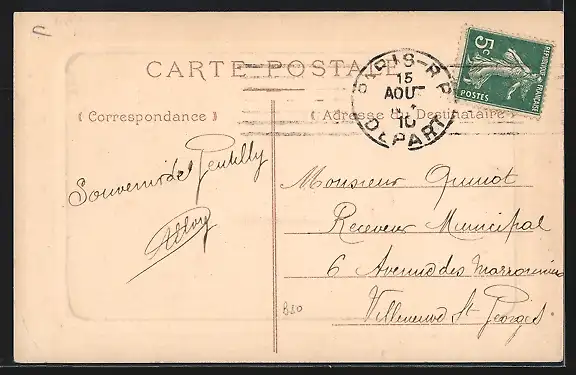 CARTE POSTALE
( Correspondance )
( Adresse du Destinataire )
PARIS-R.P
15
AOUT
10
DEPART
5c
POSTES
REPUBLIQUE FRANÇAISE
Souvenir de Gentilly
Monsieur Quinot
Receveur Municipal
6 Avenue des Marronniers
Villeneuve St Georges